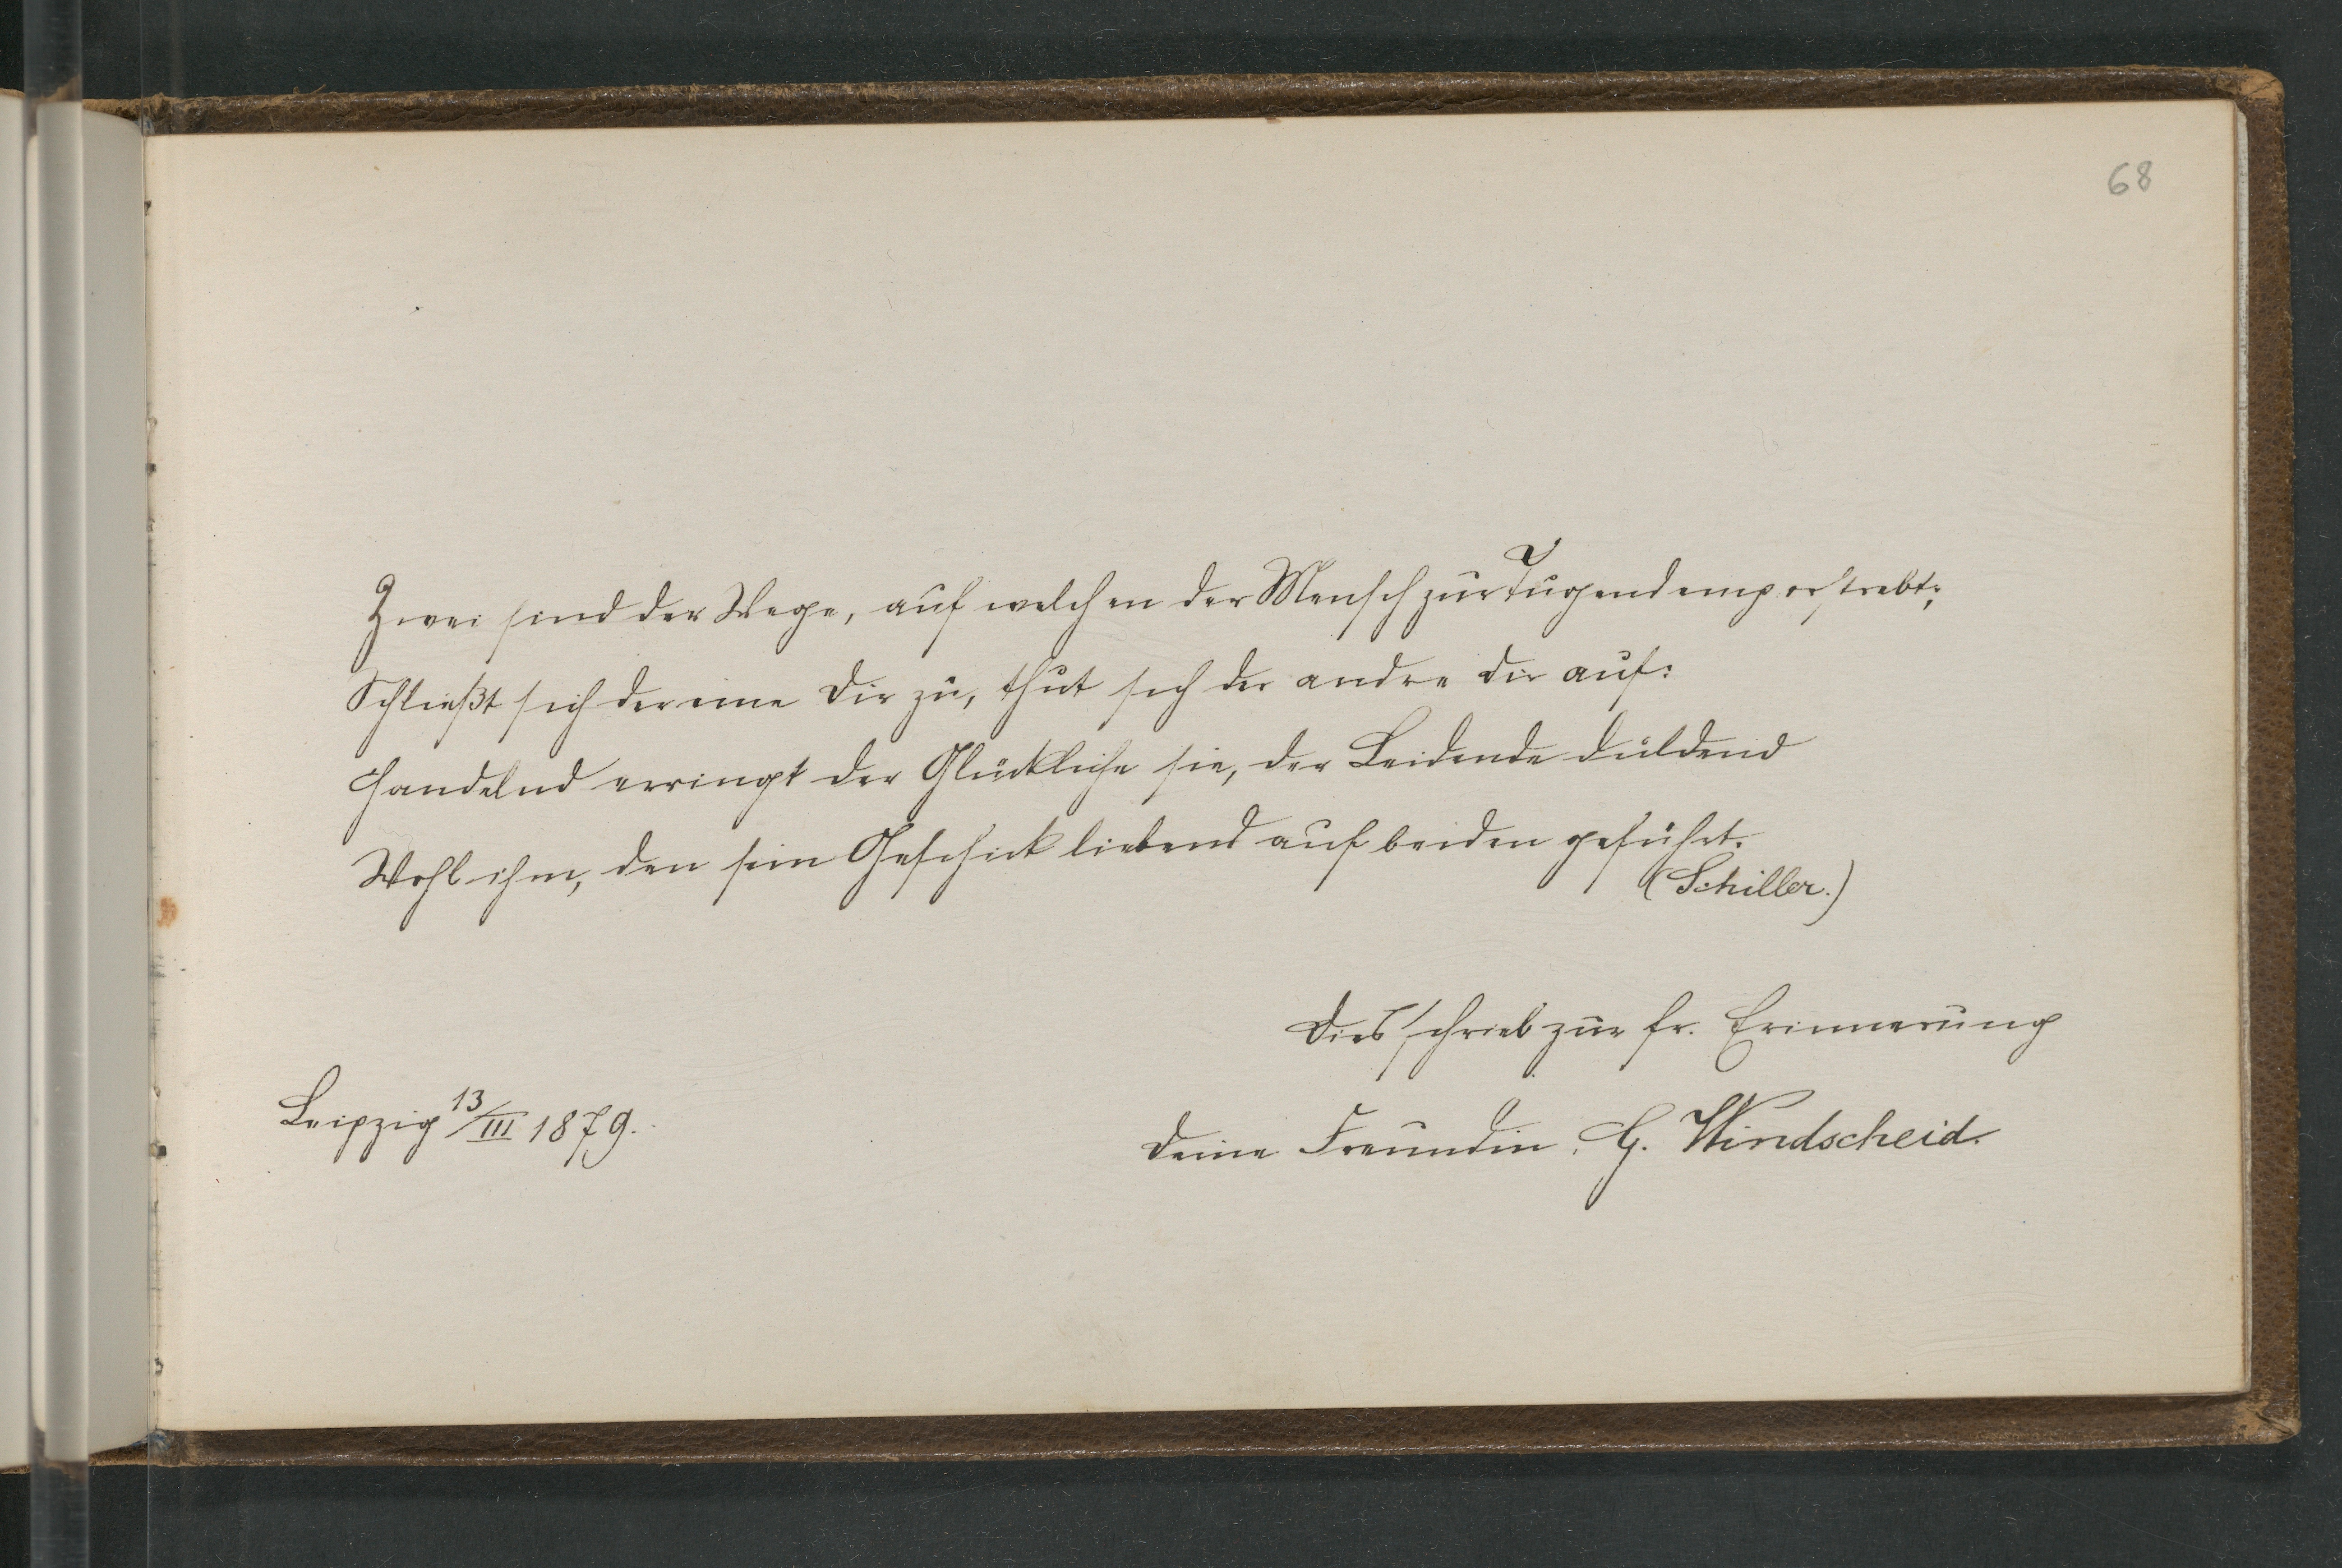 68
Zwei sind der Wege, auf welchen der Mensch zur Tugend emporstrebt;
Schließt sich der eine Dir zu, thut sich der andre Dir auf:
Handelnd erringt der Glückliche sie, der Leidende duldend
Wohl ihm, den sein Geschick liebend auf beiden geführt.
(Schiller.)
Dies schrieb zur fr. Erinnerung
Leipzig 13/III 1879.
Deine Freundin, G. Windscheid.